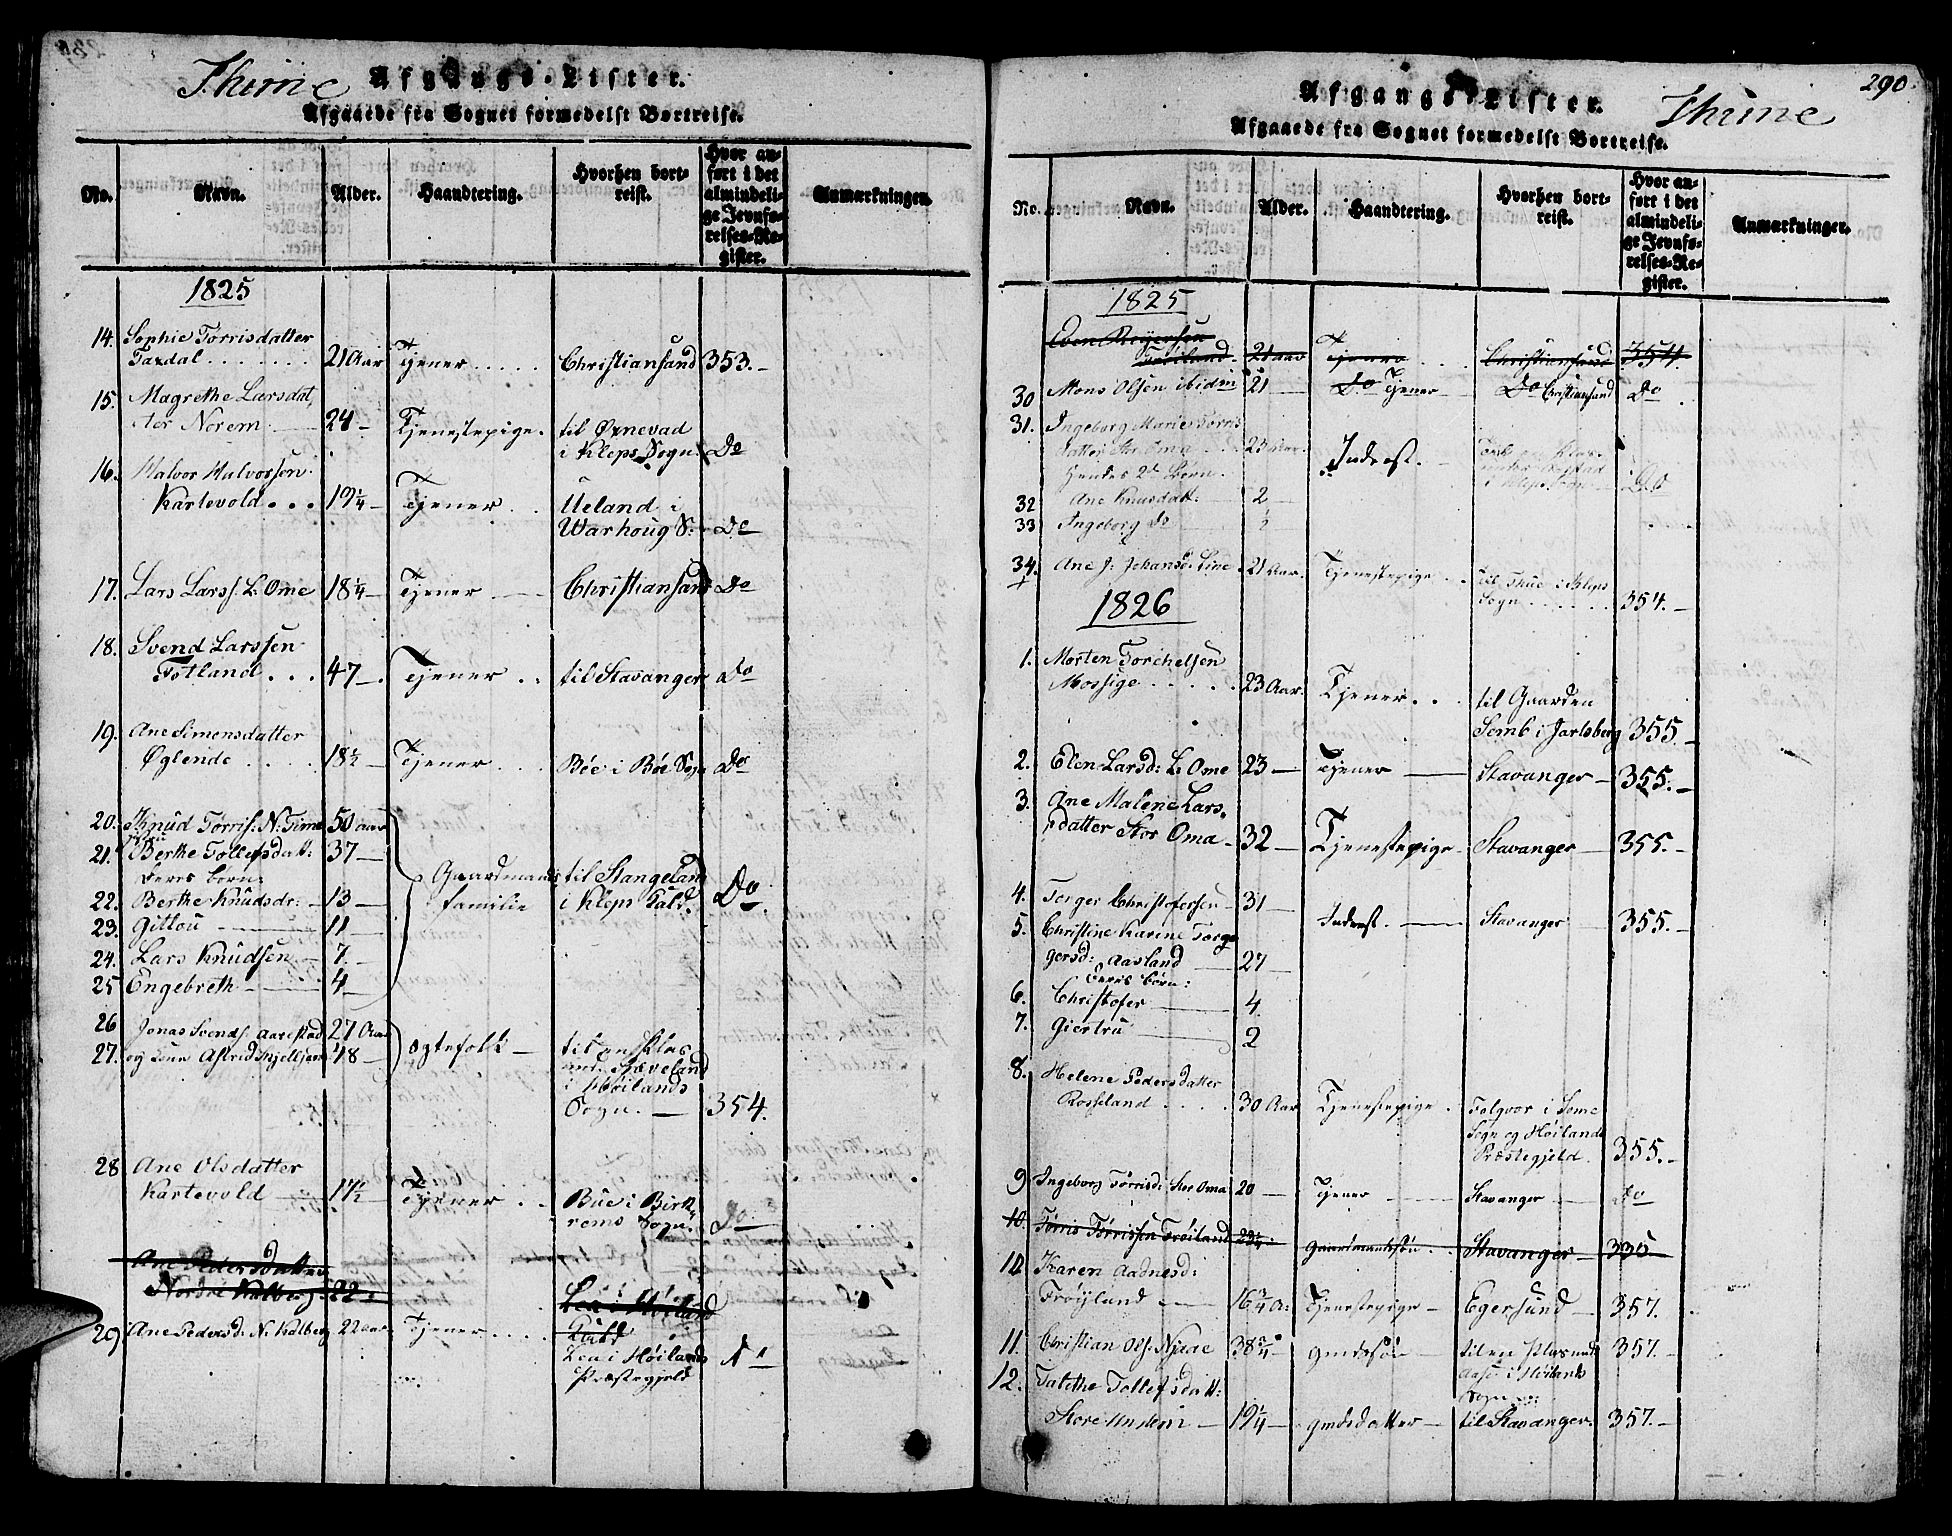 Thime
Afgangs-Lister.
Afgaaede fra Sognet formedelst Bortreise.
No. Navn. Alder. Haandtering. Hvorhen bortreist. Hvor anført i det almindelige Jevnførelses-Register. Anmærkninger.
1825
14. Sophie Torrisdatter
Taxdal 21 Aar Tjener Christiansand 353.
15. Magrethe Larsdat-
ter Norem 24 Tjenestepige til Ørnevad
i Kleps Sogn Do
16. Halvor Halvorsen
Kartevold 19¼ Tjener Ueland i
Warhoug S: Do
17. Lars Larss. L: Ome 18¼ Tjener Christiansand Do
18. Svend Larssen
Fotland 47 Tjener til Stavanger Do
19. Ane Simensdatter
Øglende 18½ Tjener Böe i Böe Sogn Do
20. Knud Torris: N: Time 50 aar
21. Berthe Tollefsdatt: 37
Deres børn:
22. Berthe Knudsdr: 13
Gaardmands
familie til Stangeland
i Kleps Kald Do
23. Gitlou 11
24. Lars Knudsen 7
25 Engebreth 4
26 Jonas Svends. Aarestad 27 Aar
27. og Kone Astrid 48 Ægtefolk til
i Höilands
Sogn. 354.
28 Ane Olsdatter
Kartevold 17½ Tjener Bue i Birk-
rems Sogn Do
Ane Pedersdatter
Nordre Kalberg 22 Lea i Høiland
Kald
29 Ane Pedersd: N. Kalberg 22 aar Tjener
Lea i Høilands
Præstegjeld
290.
Afgangs-Lister.
Thime
Afgaaede fra Sognet formedelst Bortreise.
No. Navn. Alder. Haandtering. Hvorhen bortreist. Hvor anført i det almindelige Jevnførelses-Register. Anmærkninger.
1825
Tjener Christiansand 354.
30 Mons Olsen ibidm 21 Do Tjener Do Christiansand Do
31. Ingeborg Marie Torris
datter Str Oma 23 Aar. Inderst.
Hendes 2de Børn. Do
32 Ane Knudsdatt: 2
33 Ingeborg Do
34. Ane J: Johansd: Line 21 Aar. Tjenestepige til Thue i Kleps
Sogn 354.
1826
1. Morten Torchelsen
Mossige 23 Aar. Tjener til Gaarden
Semb i Jarlsberg 355.
2. Elen Larsd: L: Ome 23 Tjener Stavanger 355.
3. Ane Malene Lars-
datter Stor Oma 32 Tjenestepige Stavanger 355.
4. Torger Christofersen 31
Inderst. Stavanger 355.
5. Christine Karine Torge
gersd: Aasland 27
Deres børn:
6. Christofer 4
7. Giertru 2
8. Helene Pedersdatter
Rosseland 30 Aar Tjenestepige Folqvor i Some
Sogn og Høilands
Præstegjeld 355.
9 Ingeborg Törrisd: Stor Oma 20 Tjener Stavanger Do
10. Tørris Törrissen Frøiland Gaardmandssön Stavanger 335
10 Karen Aadnesd:
Frøyland 16¾ A: Tjenestepige Egersund 357.
11. Christian Ols. Njaae 38¾ gmdssön til en Pladsmd
i Høilands
Sogn 357.
12. Talethe Tollefsdatt:
Store Undem 19¼ gmdsdatter til Stavanger. 357.